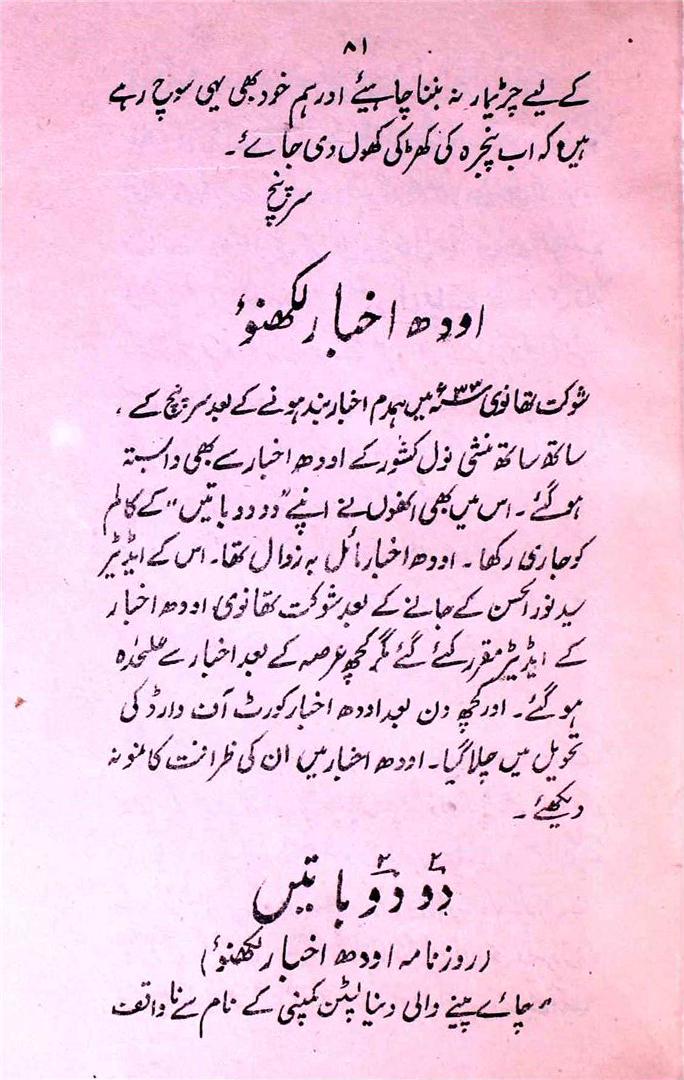 ۸۱
کے لیے چڑیمار نہ بننا چاہیئے اور ہم خود بھی یہی سوچ رہے
ہیں کہ اب پنجرہ کی کھڑکی کھول دی جائے۔
سرپنچ
اودھ اخبار لکھنوٴ
شوکت تھانوی ۳۳ء میں ہمدم اخبار بند ہونے کے بعد سرپنچ کے،
ساتھ ساتھ منشی نول کشور کے اودھ اخبار سے بھی وابستہ
ہو گئے۔ اس میں بھی انھوں نے اپنے "دو دو باتیں" کے کالم
کو جاری رکھا۔ اودھ اخبار مائل بہ زوال تھا۔ اس کے ایڈیٹر
سید نور الحسن کے جانے کے بعد شوکت تھانوی، اودھ اخبار
کے ایڈیٹر مقرر کئے گئے مگر کچھ عرصہ کے بعد اخبار سے علیحدہ
ہو گئے۔ اور کچھ دن بعد اودھ اخبار کورٹ آن وارڈ کی
تحویل میں چلا گیا۔ اودھ اخبار میں ان کی ظرافت کا نمونہ
دیکھئے۔
دو دو باتیں
(روزنامہ اودھ اخبار لکھنوٴ)
"چائے پینے والی دنیا لپٹن کمپنی کے نام سے ناواقف